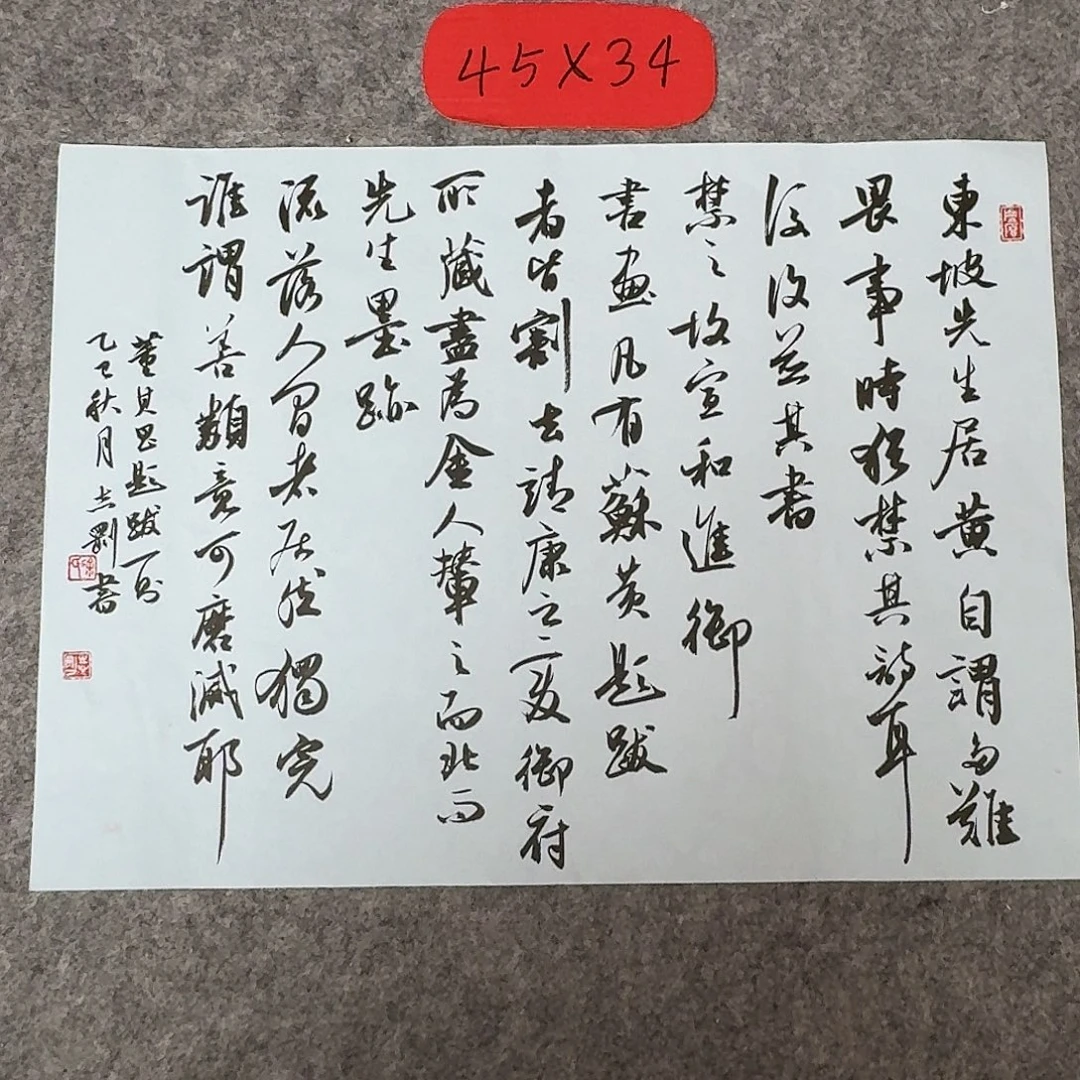 45X34
東坡先生居黄自謂多難
畏事時猶禁其詩耳
後復并其書
禁之故宣和進御
書畫凡有蘇黄題跋
者皆割去靖康之變御府
所藏盡為金人輦之而北而
先生墨跡
流落人間者居然獨完
誰謂善類竟可磨滅耶
董其昌題跋一則
乙巳秋月志剛書